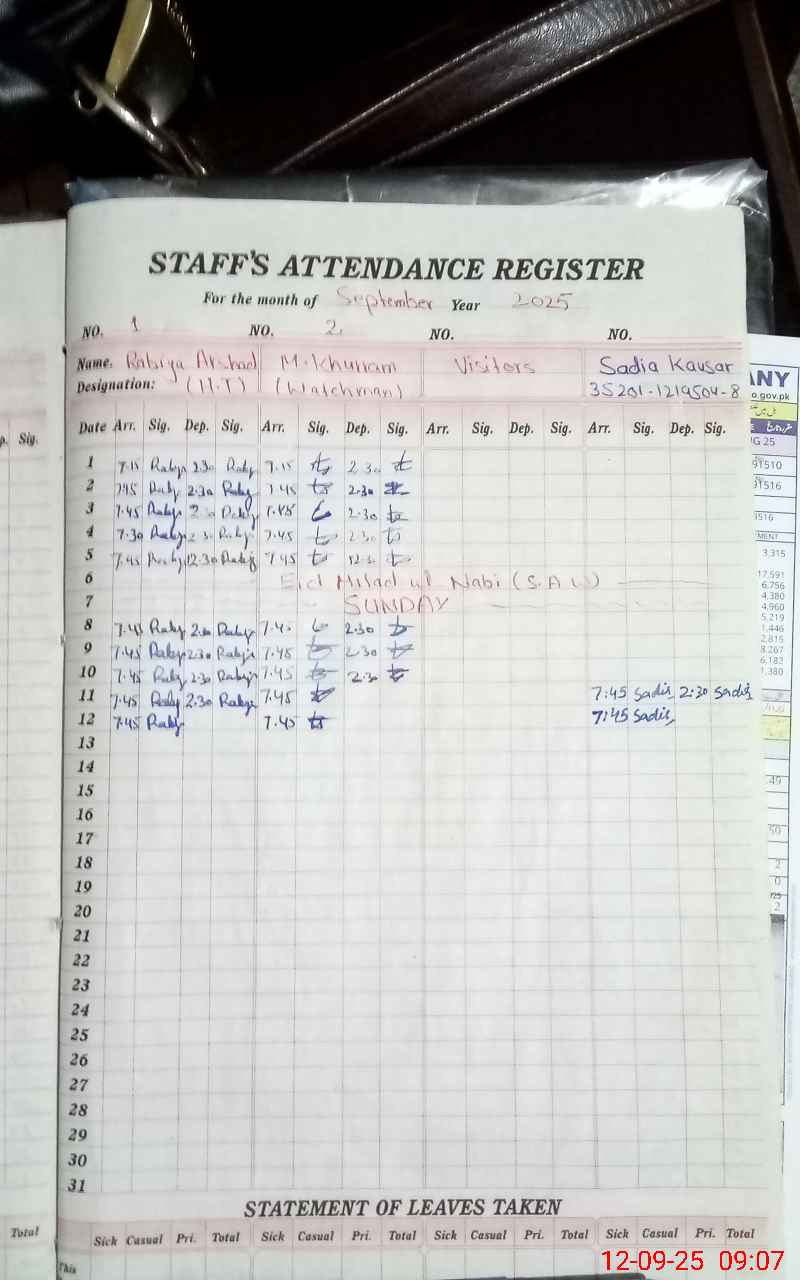 STAFF'S ATTENDANCE REGISTER
For the month of September Year 2025
NO. 1 NO. 2. NO. NO.
Name: Rabiya Arshad M. Khurram Visitors Sadia Kausar
Designation: (H.T) (Watchman) 35201-1219504-8
Date Arr. Sig. Dep. Sig. Arr. Sig. Dep. Sig. Arr. Sig. Dep. Sig. Arr. Sig. Dep. Sig.
1 7.15 2.30 7.15 2.30
2 7.45 2.30 7.45 2.30
3 7.45 2.30 7.45 2.30
4 7.30 2.30 7.45 2.30
5 7.45 12.30 7.45 12.30
6 Eid Milad ul Nabi (S.A.W)
7 SUNDAY
8 7.45 2.30 7.45 2.30
9 7.45 2.30 7.45 2.30
10 7.45 2.30 7.45 2.30
11 7.45 2.30 7.45 7:45 Sadia 2:30 Sadia
12 7.45 7.45 7:45 Sadia
13
14
15
16
17
18
19
20
21
22
23
24
25
26
27
28
29
30
31
STATEMENT OF LEAVES TAKEN
Sick Casual Pri. Total Sick Casual Pri. Total Sick Casual Pri. Total Sick Casual Pri. Total
This
Sig.
Total
ANY
o.gov.pk
G 25
3,315
17,591
6,756
4,380
4,960
5,219
1,446
2,815
8,267
6,182
1,380
12-09-25 09:07